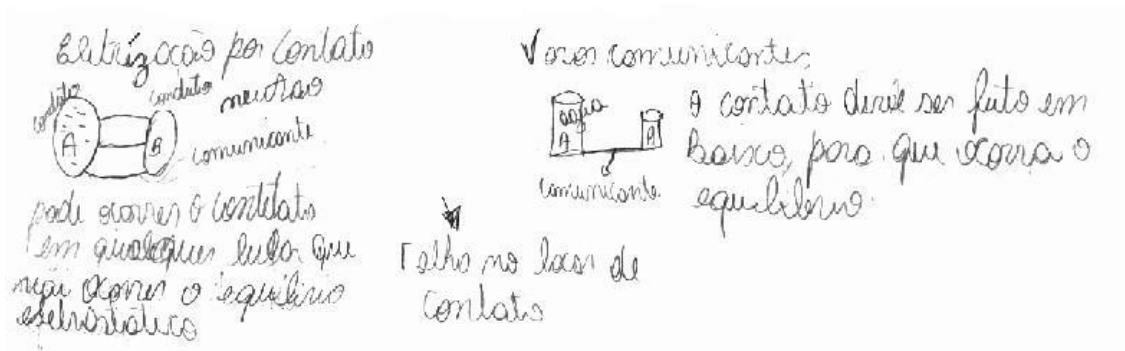 Eletrização por contato
condutor
condutor neutrao
A
B
comunicante
pode ocorrer o contato
em qualquer que
vai ocorrer o equilibrio
eletrostático
Vasos comunicantes
água
A
A
comunicante
O contato deve ser feito em
Baixo, para que ocorra o
equilibrio.
Falha no local de
contato